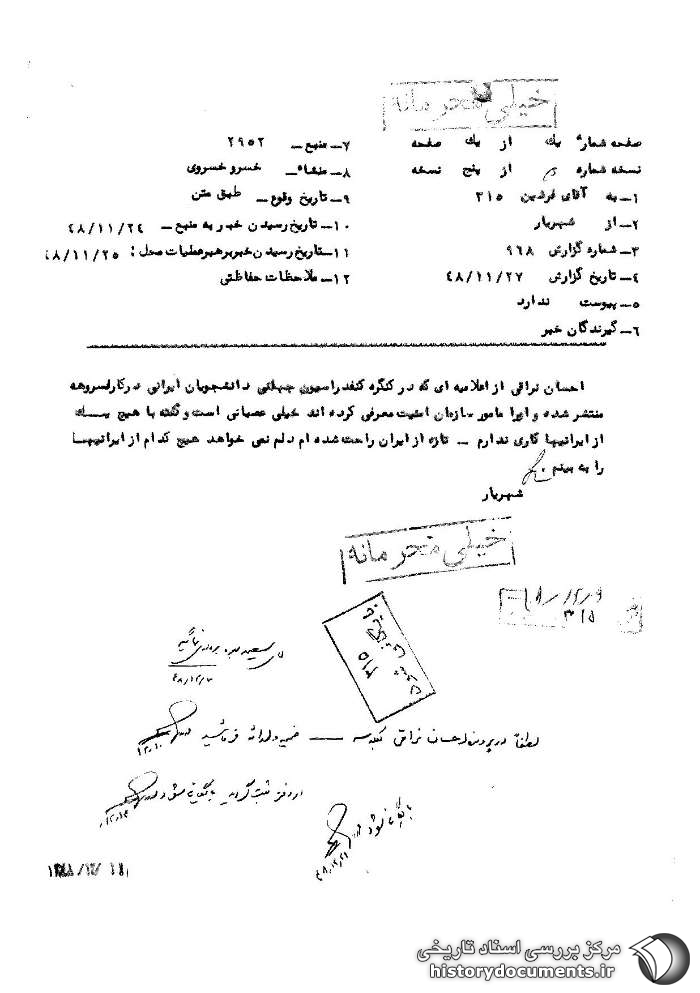 خیلی محرمانه
صفحه شماره یك از یك صفحه
نسخه شماره از پنج نسخه
۱ـ به آقای فرشین ۳۱۵
۲ـ از شهریار
۳ـ شماره گزارش ۹۶۸
۴ـ تاریخ گزارش ۴۸/۱۱/۲۷
۵ـ پیوست ندارد
۶ـ گیرندگان خبر
۷ـ منبع ـ ۲۹۵۲
۸ـ منشاء ـ خسرو خسروی
۹ـ تاریخ وقوع ـ طبق متن
۱۰ـ تاریخ رسیدن خبر به منبع ـ ۴۸/۱۱/۲۴
۱۱ـ تاریخ رسیدن خبر برهبر عملیات محل : ۴۸/۱۱/۲۵
۱۲ـ ملاحظات حفاظتی
احسان نراقی از اعلامیه ای که در کنگره کنفدراسیون جهانی دانشجویان ایرانی در کارلسروهه
منتشر شده و اورا مامور سازمان امنیت معرفی کرده اند خیلی عصبانی است و گفته با هیچ یـــك
از ایرانیها کاری ندارم ـ تازه از ایران راحت شده ام دلم نمی خواهد هیچ کدام از ایرانیهـــا
را به بینم .
شهریار
خیلی محرمانه
۳۱۵
۳۱۵
۴۸/۱۲/
لطفاً در پرونده احسان نراقی
بایگانی شود
۴۸/۱۲/۲۱
مرکز بررسی اسناد تاریخی
historydocuments.ir